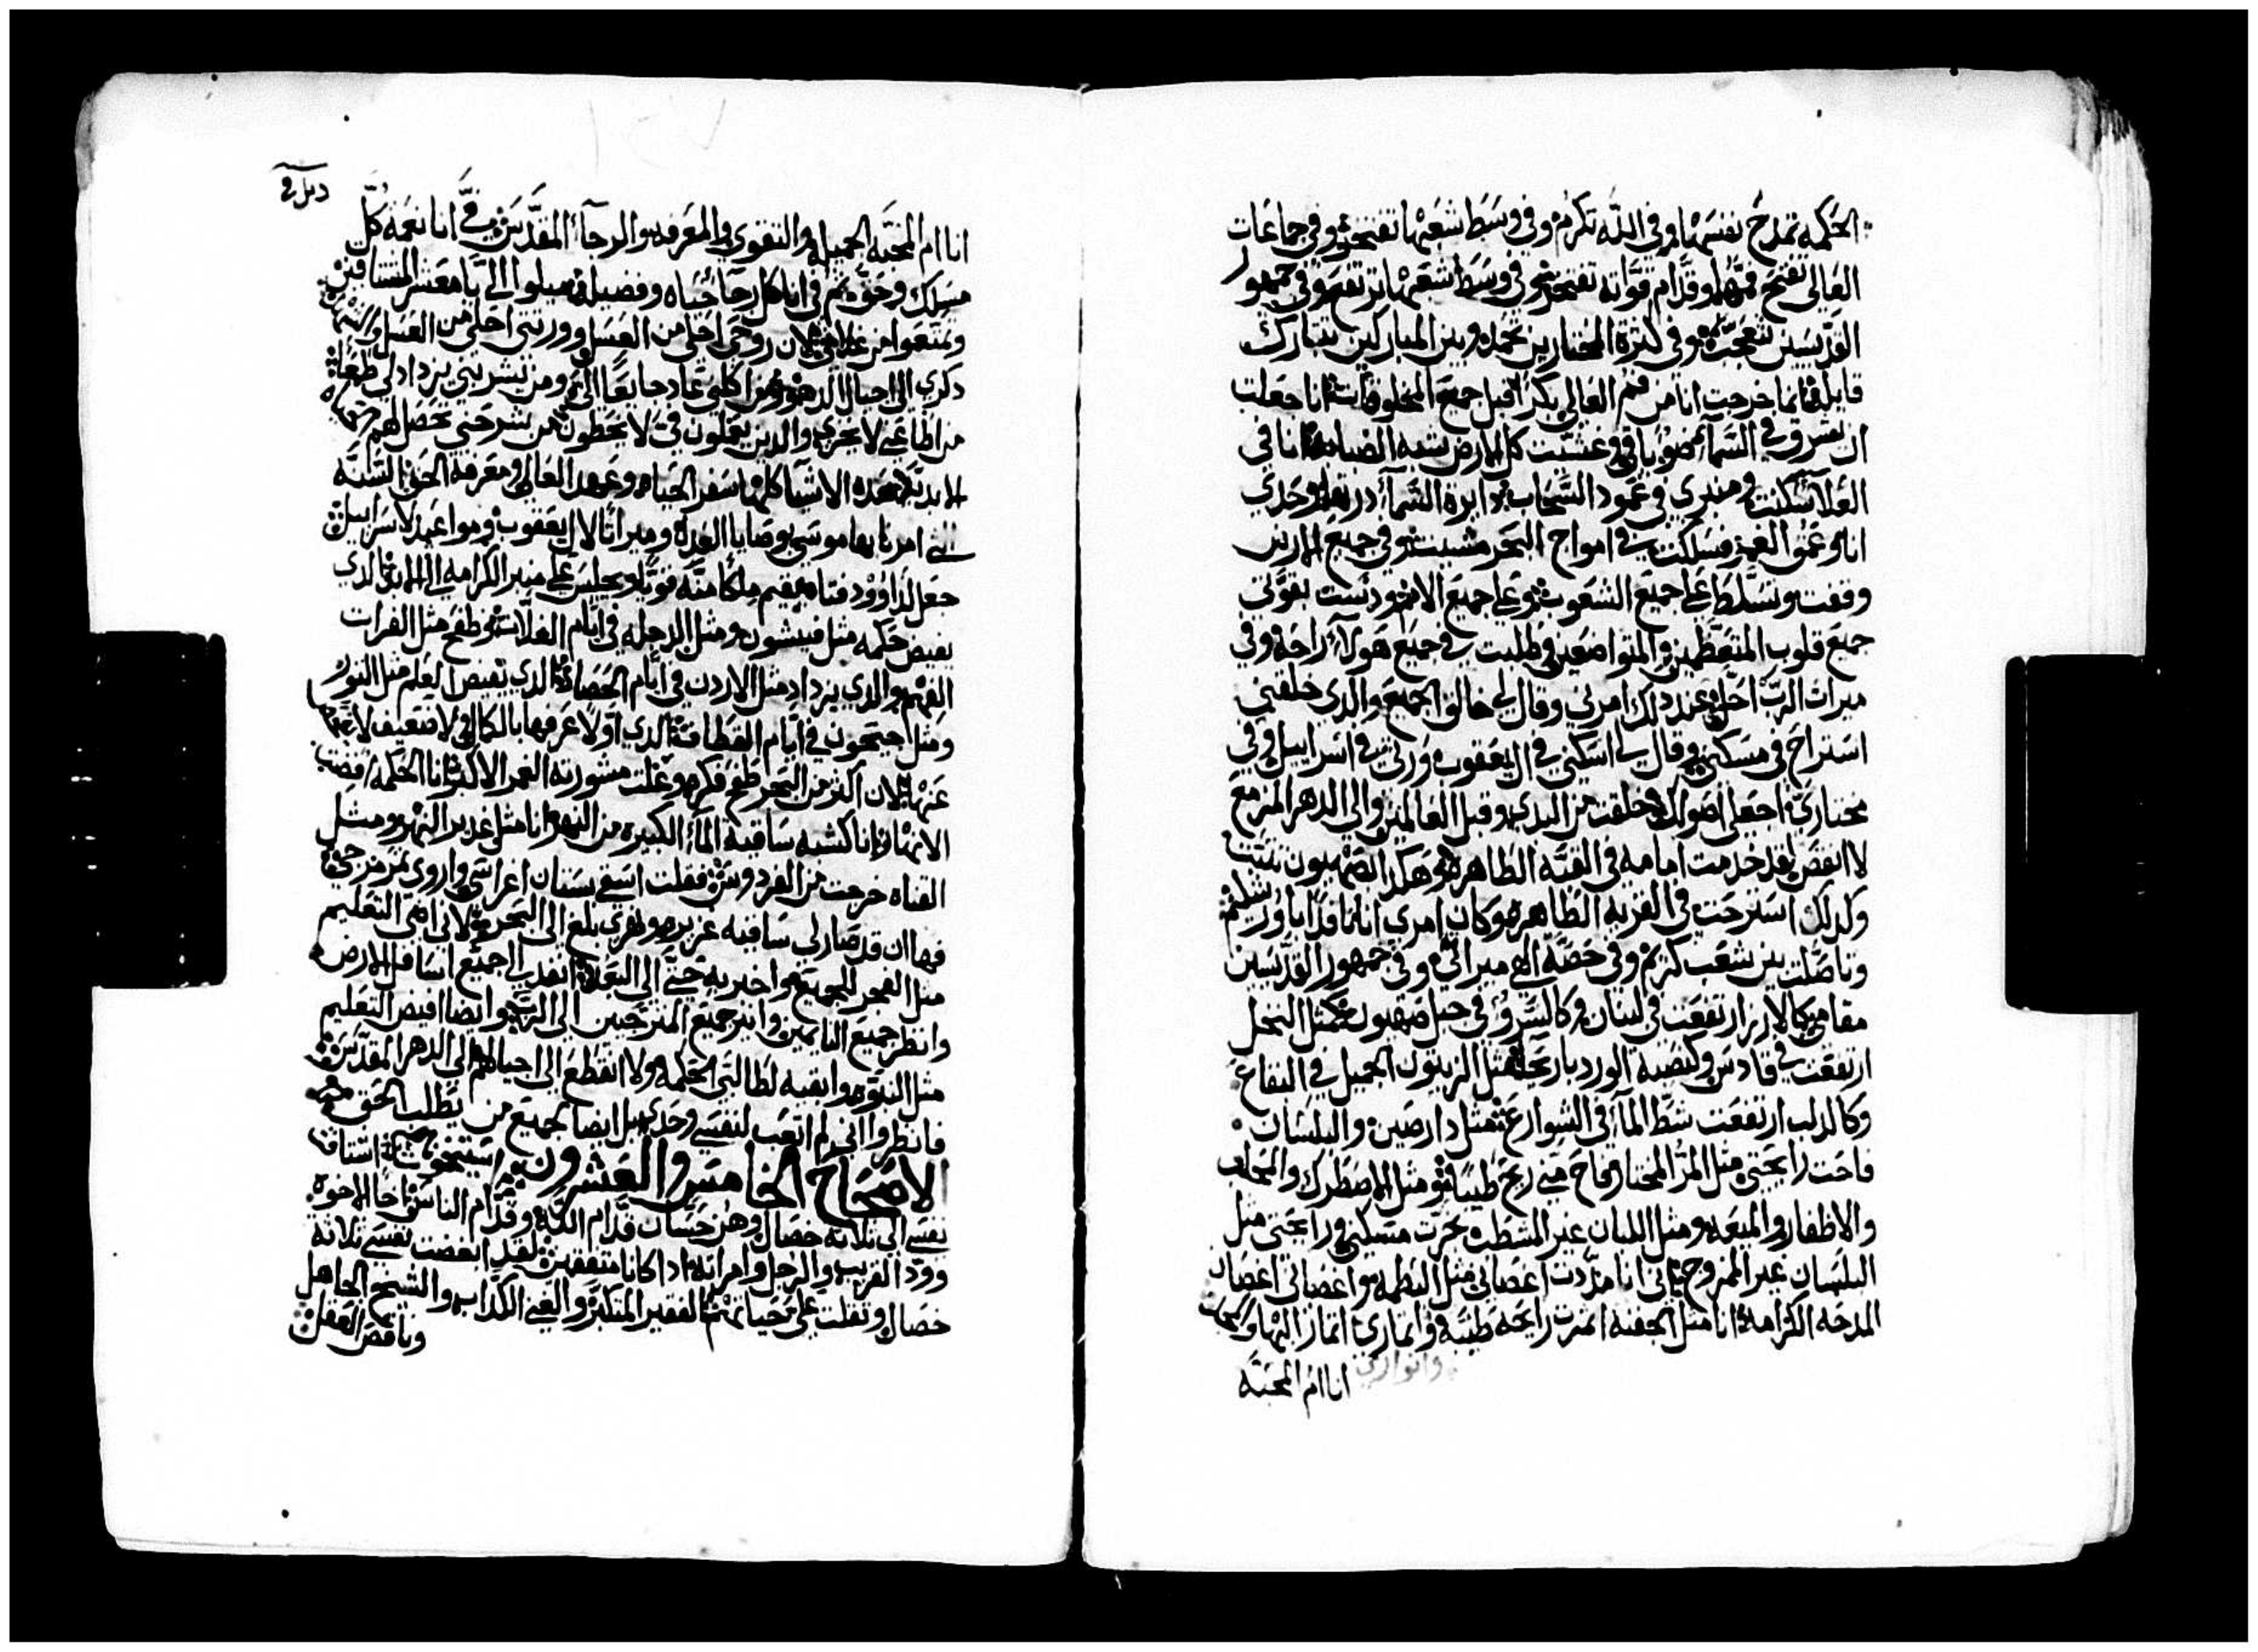 الحكمه تمدح نفسها وفي الله تكرم وفي وسط شعبها تفتخر وفي جماعات
العالي تفتح فمها وقدام قواته تفتخر وفي وسط شعبها ترتفع وفي جمهور
القديسين تتعجب وفي كثرة المختارين تحمد وبين المباركين تتبارك
قايلة انما خرجت انا من فم العالي بكرا قبل جميع المخلوقات انا جعلت
ان يشرق في السماء ضو باقي وغشيت كل الارض شبه الضبابة انا في
العلا سكنت ومنبري في عمود السحاب دايرة السماء درتها وحدي
انا وعمق العمق سلكت في امواج البحر مشيت وفي جميع الارض
وقفت وتسلطت على جميع الشعوب وعلى جميع الامم ودست بقوتي
جميع قلوب المتعظمين والمتواضعين وطلبت في جميع هولاء راحة وفي
ميراث الرب احل عند دلك امرني وقال لي خالق الجميع والدي خلقني
استراح في مسكني وقال لي اسكني في ال يعقوب ورثي في اسراييل وفي
مختاري اجعلي اصولك خلقت من البدي وقبل العالمين والى الدهر المزمع
لا انقض لقد خدمت امامه في القبه الطاهرة وهكدا في صهيون تثبت
وكدلك استرحت في القريه الطاهره وكان امري انا نافدا باورشليم
وتاصلت بين شعب كريم وفي حصة الهي ميراثي وفي جمهور القديسين
مقامي كالارز ارتفعت في لبنان وكالسرو في جبل صهيون مثل النخل
ارتفعت في قادس وكنصبة الورد باريحا مثل الزيتون الجميل في البقاع
وكالدلب ارتفعت شط الماء في الشوارع مثل دارصين والبلسان
فاحت رايحتي مثل المر المختار فاح مني ريح طيبا ومثل الاصطرك والمحلب
والاظفار والميعه ومثل اللبان غير المشطب بخرت مسكني ورايحتي مثل
البلسان غير الممزوج اني انا مددت اغصاني مثل البطمه واغصاني اغصان
المدحه الكرامه انا مثل الجفنه اثمرت رايحه طيبه وانواري اثمار البها والكرامه
انا ام المحبه
انا ام المحبه الجميله والتقوى والمعرفه والرجاء المقدس في انا نعمة كل
مسلك وحق تم في انا كل رجاء حياه وفضيله ميلوا الي يا معشر المشتاقين
وتمتعوا من غلاتي لان روحي احلى من العسل وورثتي احلى من العسل والشهد
دكري الى اجيال الدهور من اكلني عاد جايعا الي ومن يشربني يزداد لي ظما
من اطاعني لا يخزي والدين يعملون في لا يخطون من يشرحني تحصل لهم حياه
الابديه هده الاشيا كلها سفر الحياه وعهد العالي ومعرفه الحق السنه
التي امرنا بها موسى بوصايا العدل وميراثا لال يعقوب ومواعيد لاسراييل
جعل لداوود فتاه يقيم ملكا منه قويا ويجلس على منبر الكرامه الى الابد الدي
يفيض حكمه مثل فيشون ومثل الدجله في ايام الغلات يطفح مثل الفرات
الفهم والدي يزداد مثل الاردن في ايام الحصاد الدي يفيض العلم مثل النور
ومثل جيحون في ايام القطافة الدي اولا عرفها بالكمال لا ضعيف لا يفحص
عنها لان اكثر من البحر طفح فكره وغلت مشورته الغمر الاكبر انا الحكمه افضت
الانهار انا كشبه ساقية الماء الكبيره من النهر انا مثل غدير النهر ومثل
القناه خرجت من الفردوس فقلت اسقي بستان اغراسي واروي ثمر مرجي
فها ان قد صار لي ساقيه غزيره ونهري بلغ الى البحر لاني اضي التعليم
مثل الفجر للجميع واخبر به حتى الى البعد انفد الى جميع اسافل الارض
وانظر جميع النايمين وانير جميع المترجيين الى الرب وايضا افيض التعليم
مثل النبوه وابقيه لطالبي الحكمه ولا انقطع الى اجيالهم الى الدهر المقدس
فانظروا اني لم اتعب لنفسي وحدي بل ايضا لجميع من يطلب الحق
الاصحاح الخامس والعشرون اشتاقت
نفسي الى ثلاثه خصال وهن حسان قدام الله وقدام الناس اخا الاخوه
وود القريب والرجل وامراته ادا كانا متفقين لقد ابغضت نفسي ثلاثه
خصال وثقلت علي حياتهم الفقير المتكبر والغني الكداب والشيخ الجاهل
وناقص العقل